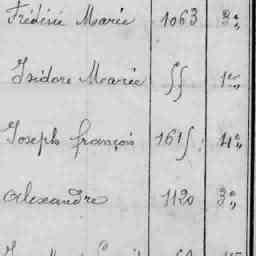 Frédéric Marie 1063 3e"
Isidore Marie 55 1er"
Joseph françois 1615 4e"
Alexandre 1120 3e"